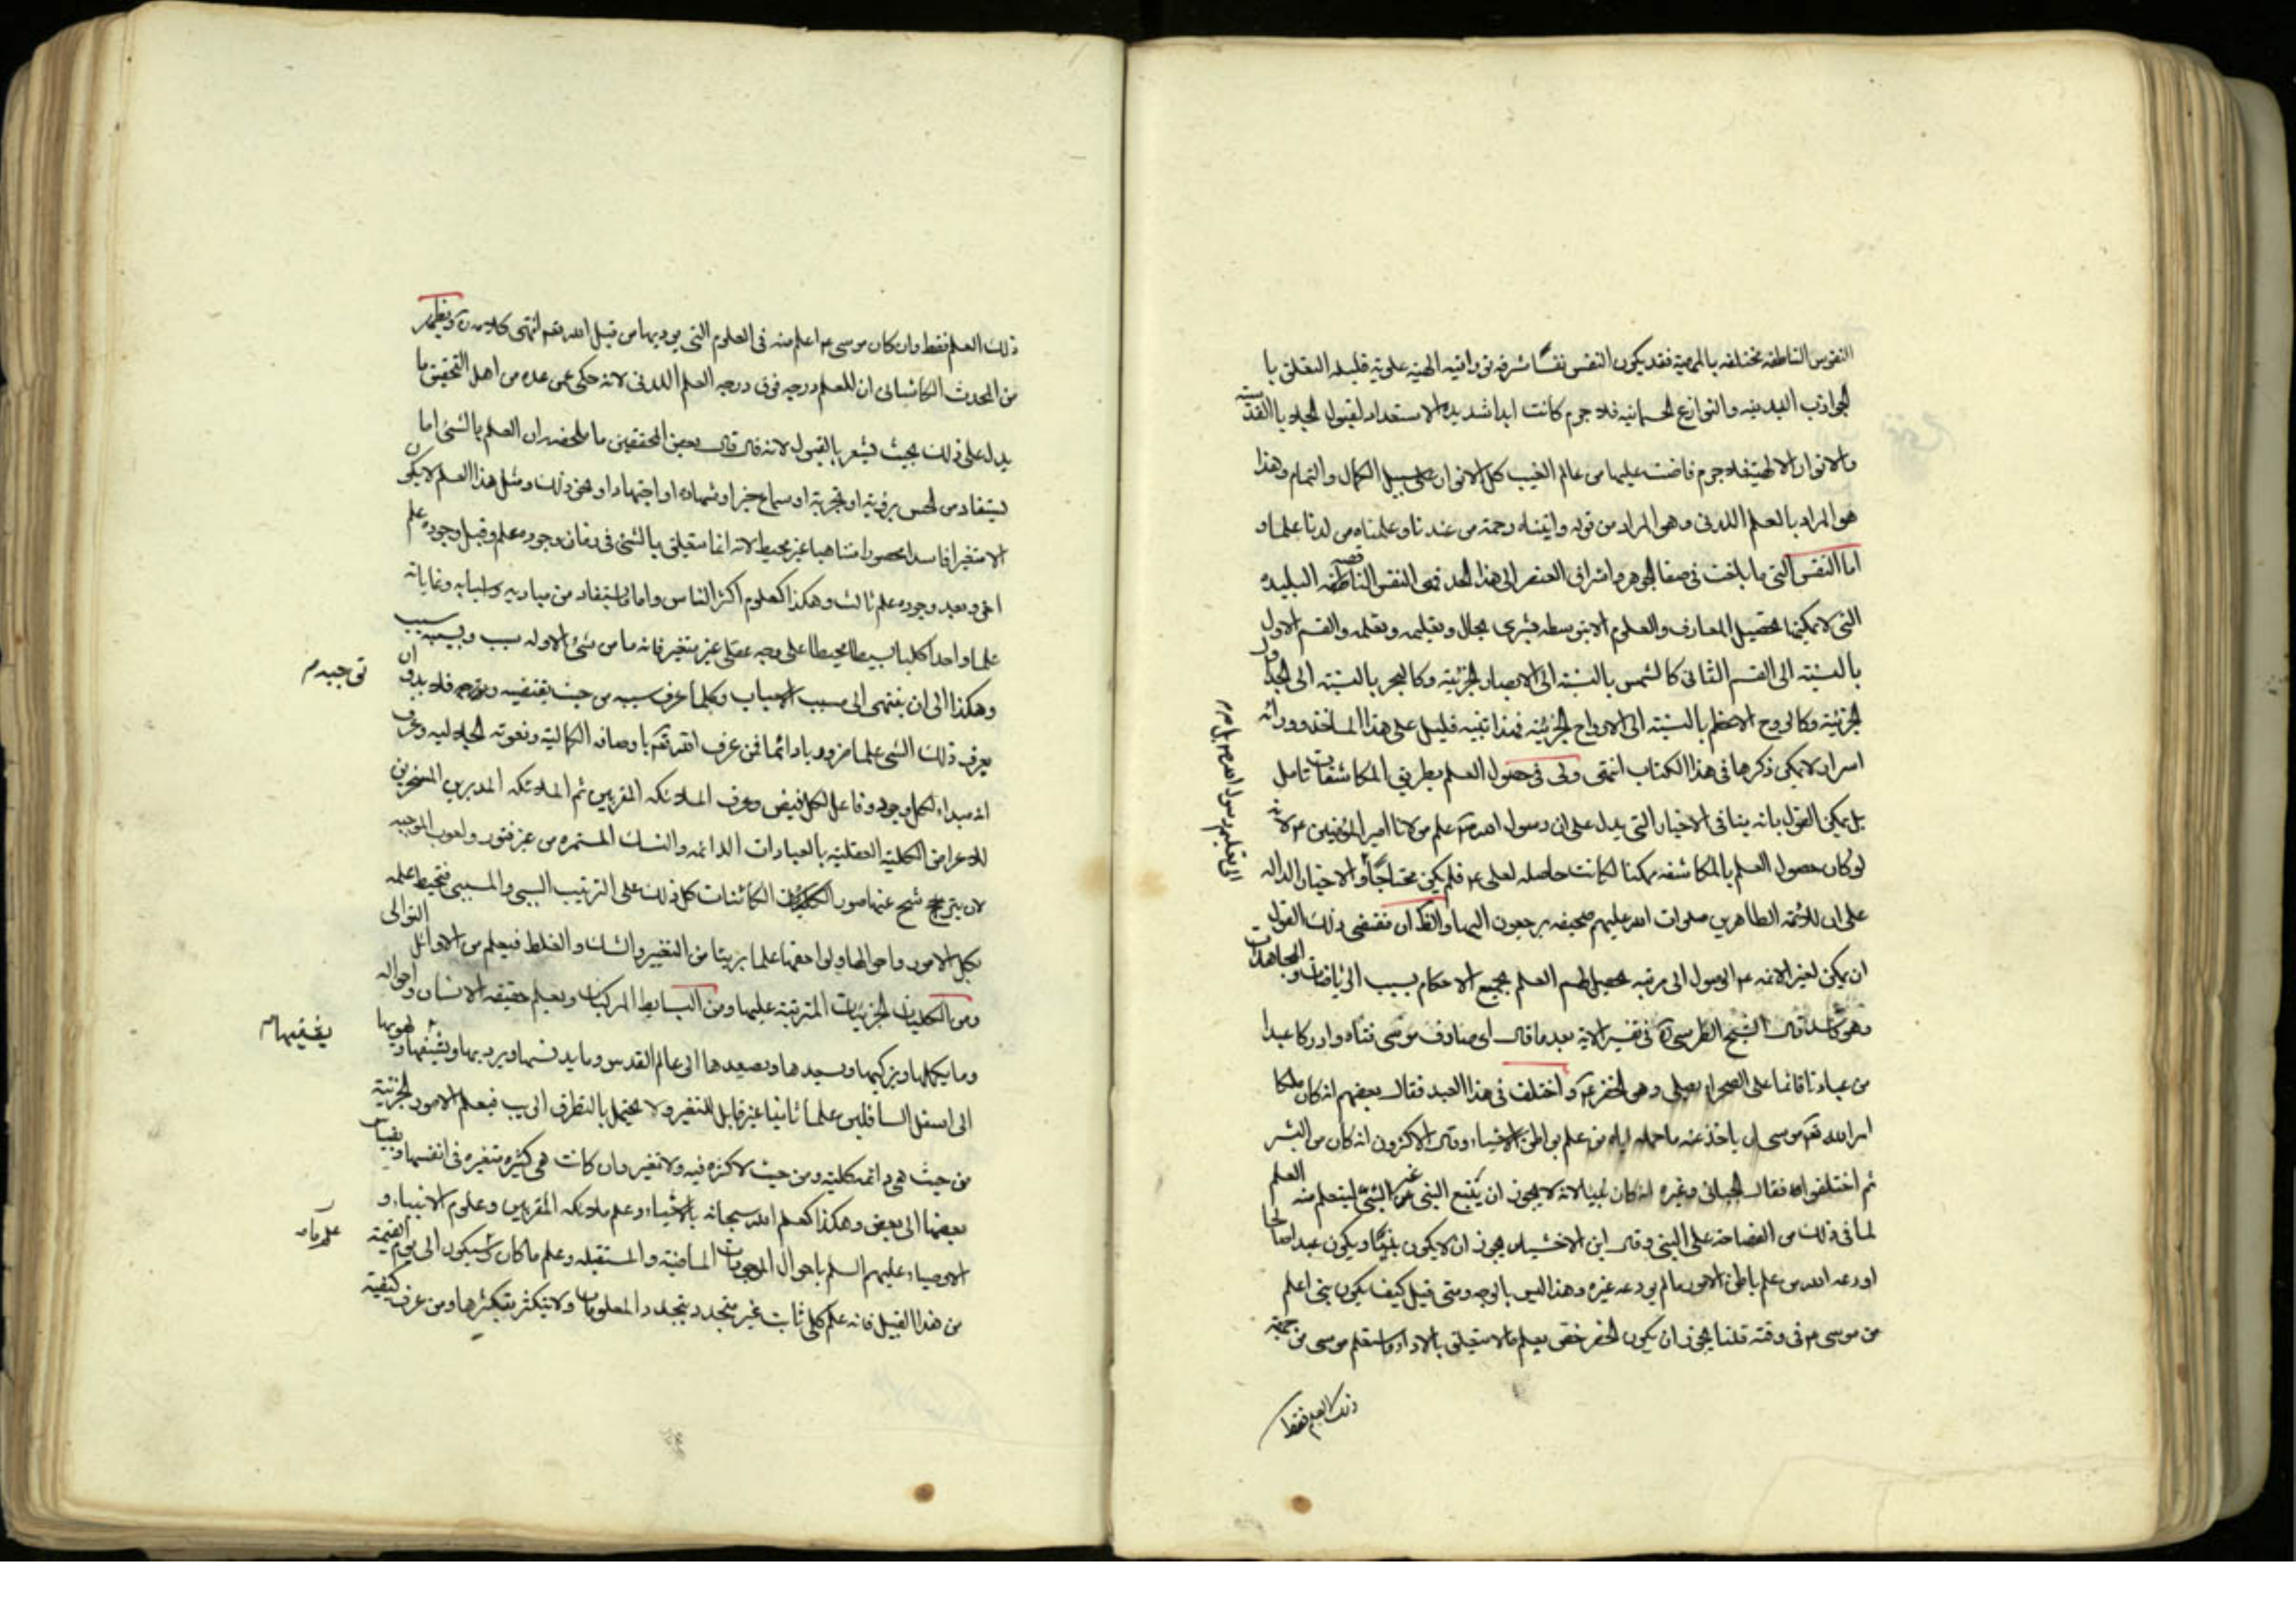 النفوس الناطقه مختلفه بالمهية فقد يكون النفس نفسًا شرفه نورانيه الهية علوية قليله التعلق با
لجواذب البدنيه والنوازع الجسمانيه فلا جرم كانت ابدا شديده الاستعداد لقبول الجلايا القدسية
والانوار الالهيتة فلا جرم فاضت عليها من عالم الغيب كل الانوار على سبيل الكمال والتمام وهذا
هو المراد بالعلم اللدنى وهو المراد من قوله واتيناه رحمة من عندنا وعلمناه من لدنا علما و
اما النفس التى ما بلغت فى صفا الجوهر واشراق العنصر الى هذا الحد فهى النفس الناقصه الناطقه البليده
التى لا يمكنها تحصيل المعارف والعلوم الا بتوسطه بشرى يحال وتعليمه وتعلمه والقسم الاول
بالنسبته الى القسم الثانى كالشمس بالنسبته الى الابصار الجزئيته وكالبحر بالنسبته الى الجداول
الجزئية وكالروح الاعظم بالنسبته الى الارواح الجزئيته فهذا تنبيه قليل على هذا الماخذ وورائه
اسرار لا يمكن ذكرها فى هذا الكتاب انتهى ولى فى حصول العلم بطريق المكاشفات تامل
بل يمكن القول بانه ينافى الاخبار التى يدل على ان رسول الله ص علم مولانا امير المؤمنين ع لانه
لو كان حصول العلم بالمكاشفه ممكنا لكانت حاصله لعلى ع فلم يكن محتاجًا والاخبار الداله
الى تعليم رسول الله ص
على ان للائمه الطاهرين صلوات الله عليهم صحيفه يرجعون اليها والقران فمقتضى ذلك القول
ان يمكن لغير الائمه ع الوصول الى مرتبه تحصيل لهم العلم بجميع الاحكام بسبب الرياضات والمجاهدات
وهو كاسد قال الشيخ الطبرسى ره فى تفسير الاية بعد ما قال اى صادف موسى فتاه وادركا عبدا
من عبادنا قائما على الصخرا يصلى وهو الخضر ع واختلف فى هذا العبد فقال بعضهم انه كان ملكا
امر الله تع موسى ان ياخذ عنه ما حمله اياه من علم بواطن الاشياء وقال الاكثرون انه كان من البشر
ثم اختلفوا فقال الجبائى وغيره انه كان نبيا لانه لا يجوز ان يتبع النبى غير النبى ليتعلم منه العلم
لما فى ذلك من الغضاضة على النبى وقال ابن الاخشيد يجوز ان لا يكون نبيًّا ويكون عبدا صالحا
اودعه الله من علم باطن الامور ما لم يودعه غيره وهذا ليس بالوجه ومتى قيل كيف يكون نبى اعلم
من موسى ع فى وقته قلنا يجوز ان يكون الخضر خص بعلم ما لا يتعلق بالاداء واستعلم موسى من جهته
ذلك العلم فقط
ذلك العلم فقط وان كان موسى ع اعلم منه فى العلوم التى يوديها من قبل الله تعم انتهى كلامه ره ويظهر
من المحدث الكاشانى ان للعلم درجه فوق درجه العلم اللدنى لانه حكى عن عده من اهل التحقيق ما
يدل على ذلك بحيث يشعر بالقبول لانه قال قال بعض المحققين ما ملخصه ان العلم بالشئ اما
يستفاد من الحس برؤية او تجربة او سماع خبر او شهاده او اجتهاد او نحو ذلك ومثل هذا العلم لا يكون
الا متغيرا فاسدا محصورا متناهيا غير محيط لانه انما متعلق بالشئ فى زمان وجوده علم وقبل وجوده علم
اخر وبعد وجوده علم ثالث وهكذا كعلوم اكثر الناس واما يستفاد من مباديه واسبابه وغاياته
علما واحدا كليا بسيطا محيطا على وجه عقلى غير متغير فانه ما من شئ الا وله سبب ولسببه سبب
وهكذا الى ان ينتهى الى مسبب الاسباب وكلما عرف سببه من حيث يقتضيه ويوجبه فلا بد وان
توجيه م
يعرف ذلك الشئ علما ضروريا دائما فمن عرف الله تع باوصافه الكمالية ونعوته الجلاليه وعرف
انه مبداء لكل وجود وفاعل لكل فيض وعرف الملائكه المقربين ثم الملائكه المدبرين المسخرين
للاغراض الكلية العقلية بالعبادات الدائمه والنسك المستمره من غير فتور ولغوب الموجبه
لان يترشح عنها صور الكائنات كل ذلك على الترتيب السببى والمسببى فيحيط علمه
بكل الامور واحوالها ولواحقها علما بريئا من التغير والشك والغلط فيعلم من الاوائل الثوانى
ومن الكليات الجزئيات المترتبة عليها ومن البسايط المركبات ويعلم حقيقه الانسان واحواله
وما يكملها ويزكيها ويسعدها ويصعدها الى عالم القدس وما يدنسها ويرديها ويشقيها ويهويها
يشقيها م
الى اسفل السافلين علما ثابتا غير قابل للتغير ولا يحتمل بالتطرق الريب فيعلم الامور الجزئية
من حيث هى دائمه كلية ومن حيث لا كثره فيه ولا تغير وان كانت هى كثيره متغيره فى انفسها وبقياس
بعضها الى بعض وهكذا كعلم الله سبحانه بالاشياء وعلم ملائكه المقربين وعلوم الانبياء و
الاوصياء عليهم السلم باحوال الموجودات الماضية والمستقبله وعلم ما كان وسيكون الى يوم القيمة
من هذا القبيل فانه علم كلى ثابت غير متجدد بتجدد المعلومات ولا يتكثر بتكثرها ومن عرف كيفية